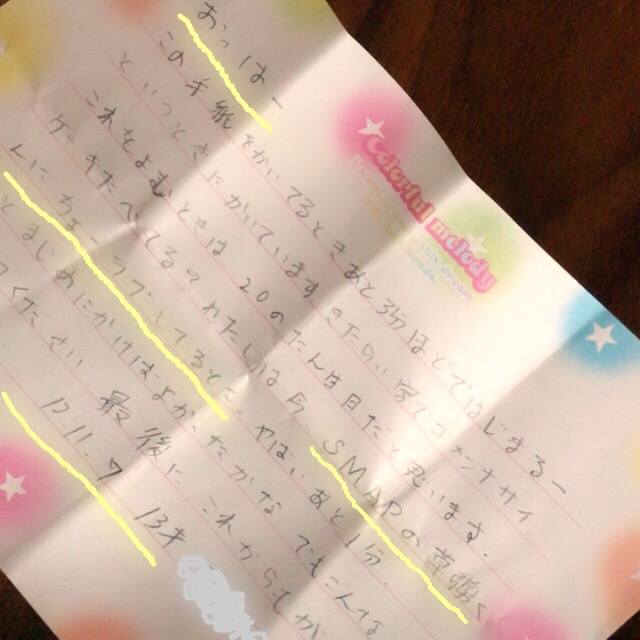 おっはー
この手紙をかいてるときあと3分ほどではじまるー
というときにかいています。きたない字でゴメンナサイ
これをよむときは 20のたん生日だと思います。
たべてる?わたしは今 SMAPの草彅く
ラブしてると やばいあと1分。
とまじめにかけばよかったかな でもこんな
ください 最後に これからもが
12.11.7 13才
Colorful melody